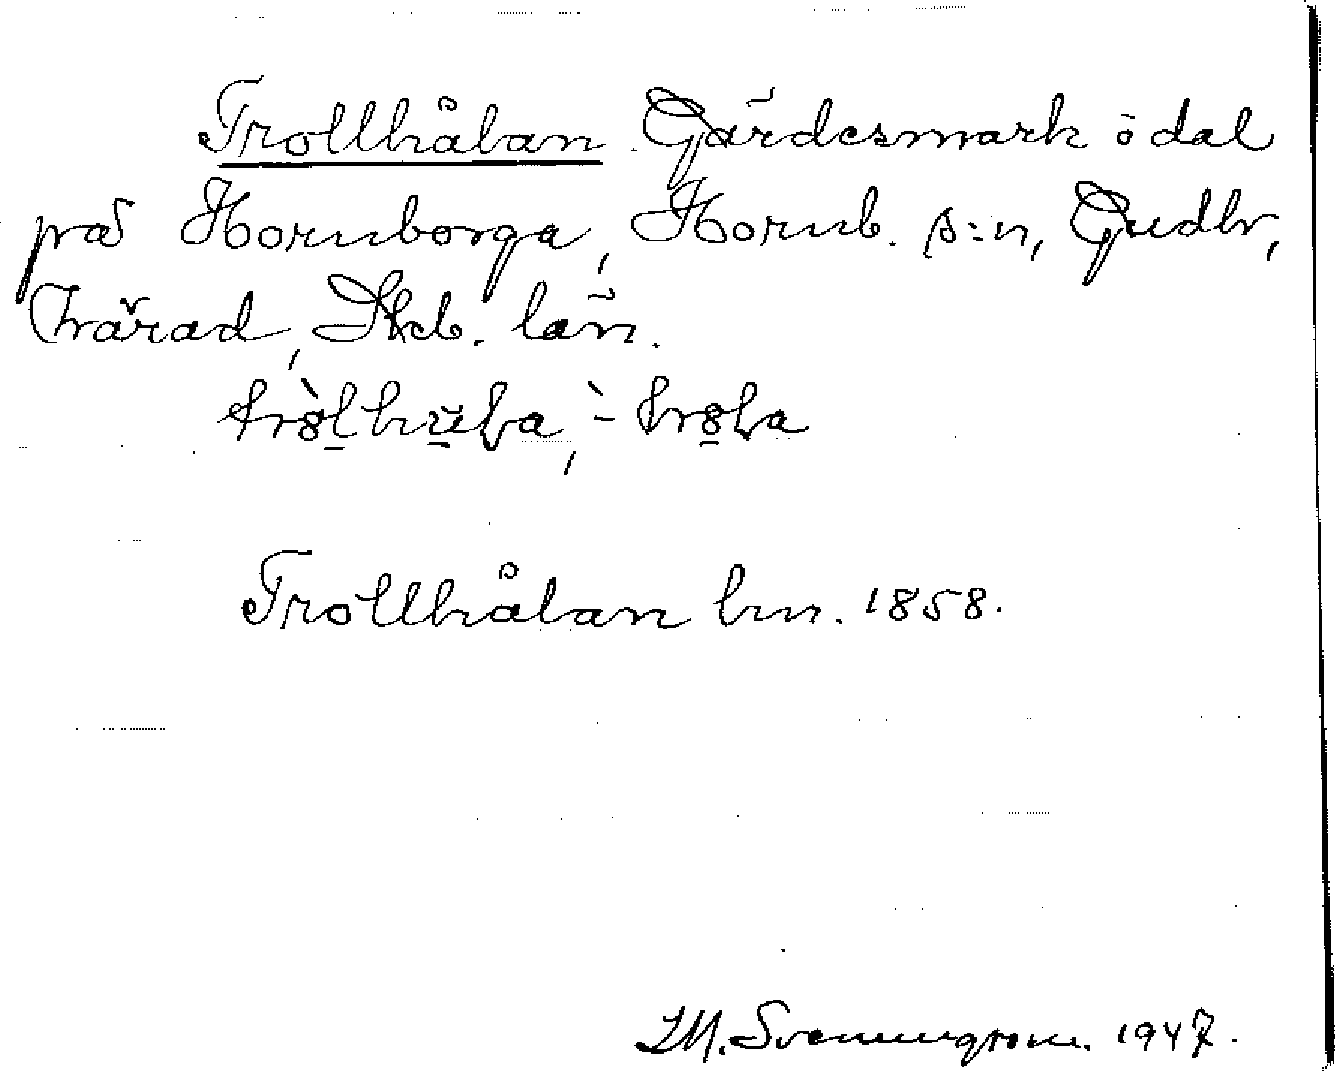 Trollhålan Gärdesmark o dal
på Hornborga, Hornb. s:n, Gudh,
härad, Skb. län.
Trollhålan lm. 1858.
I.M. Svenungsson. 1947.